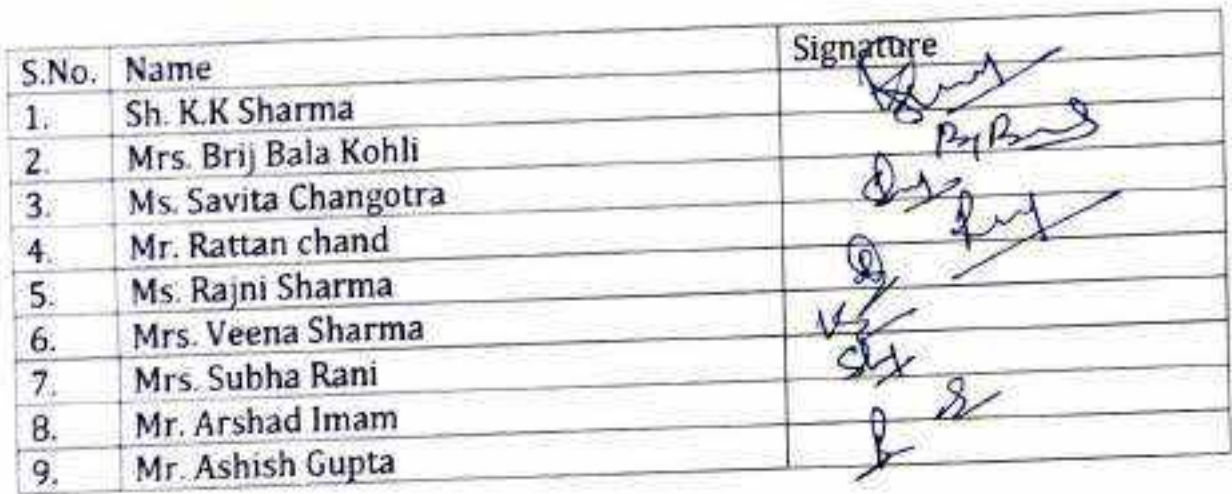 S.No. Name Signature
1. Sh. K.K Sharma
2. Mrs. Brij Bala Kohli
3. Ms. Savita Changotra
4. Mr. Rattan chand
5. Ms. Rajni Sharma
6. Mrs. Veena Sharma
7. Mrs. Subha Rani
8. Mr. Arshad Imam
9. Mr. Ashish Gupta